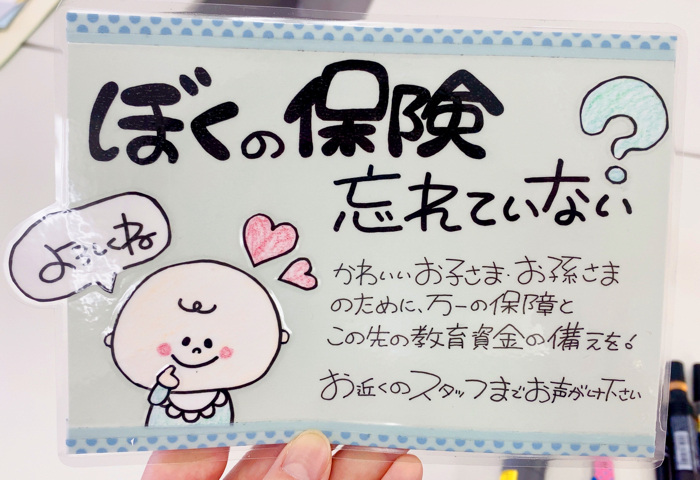 ぼくの保険
忘れていない
?
よろしくね
かわいいお子さま・お孫さま
のために、万一の保障と
この先の教育資金の備えを。
お近くのスタッフまでお声がけ下さい